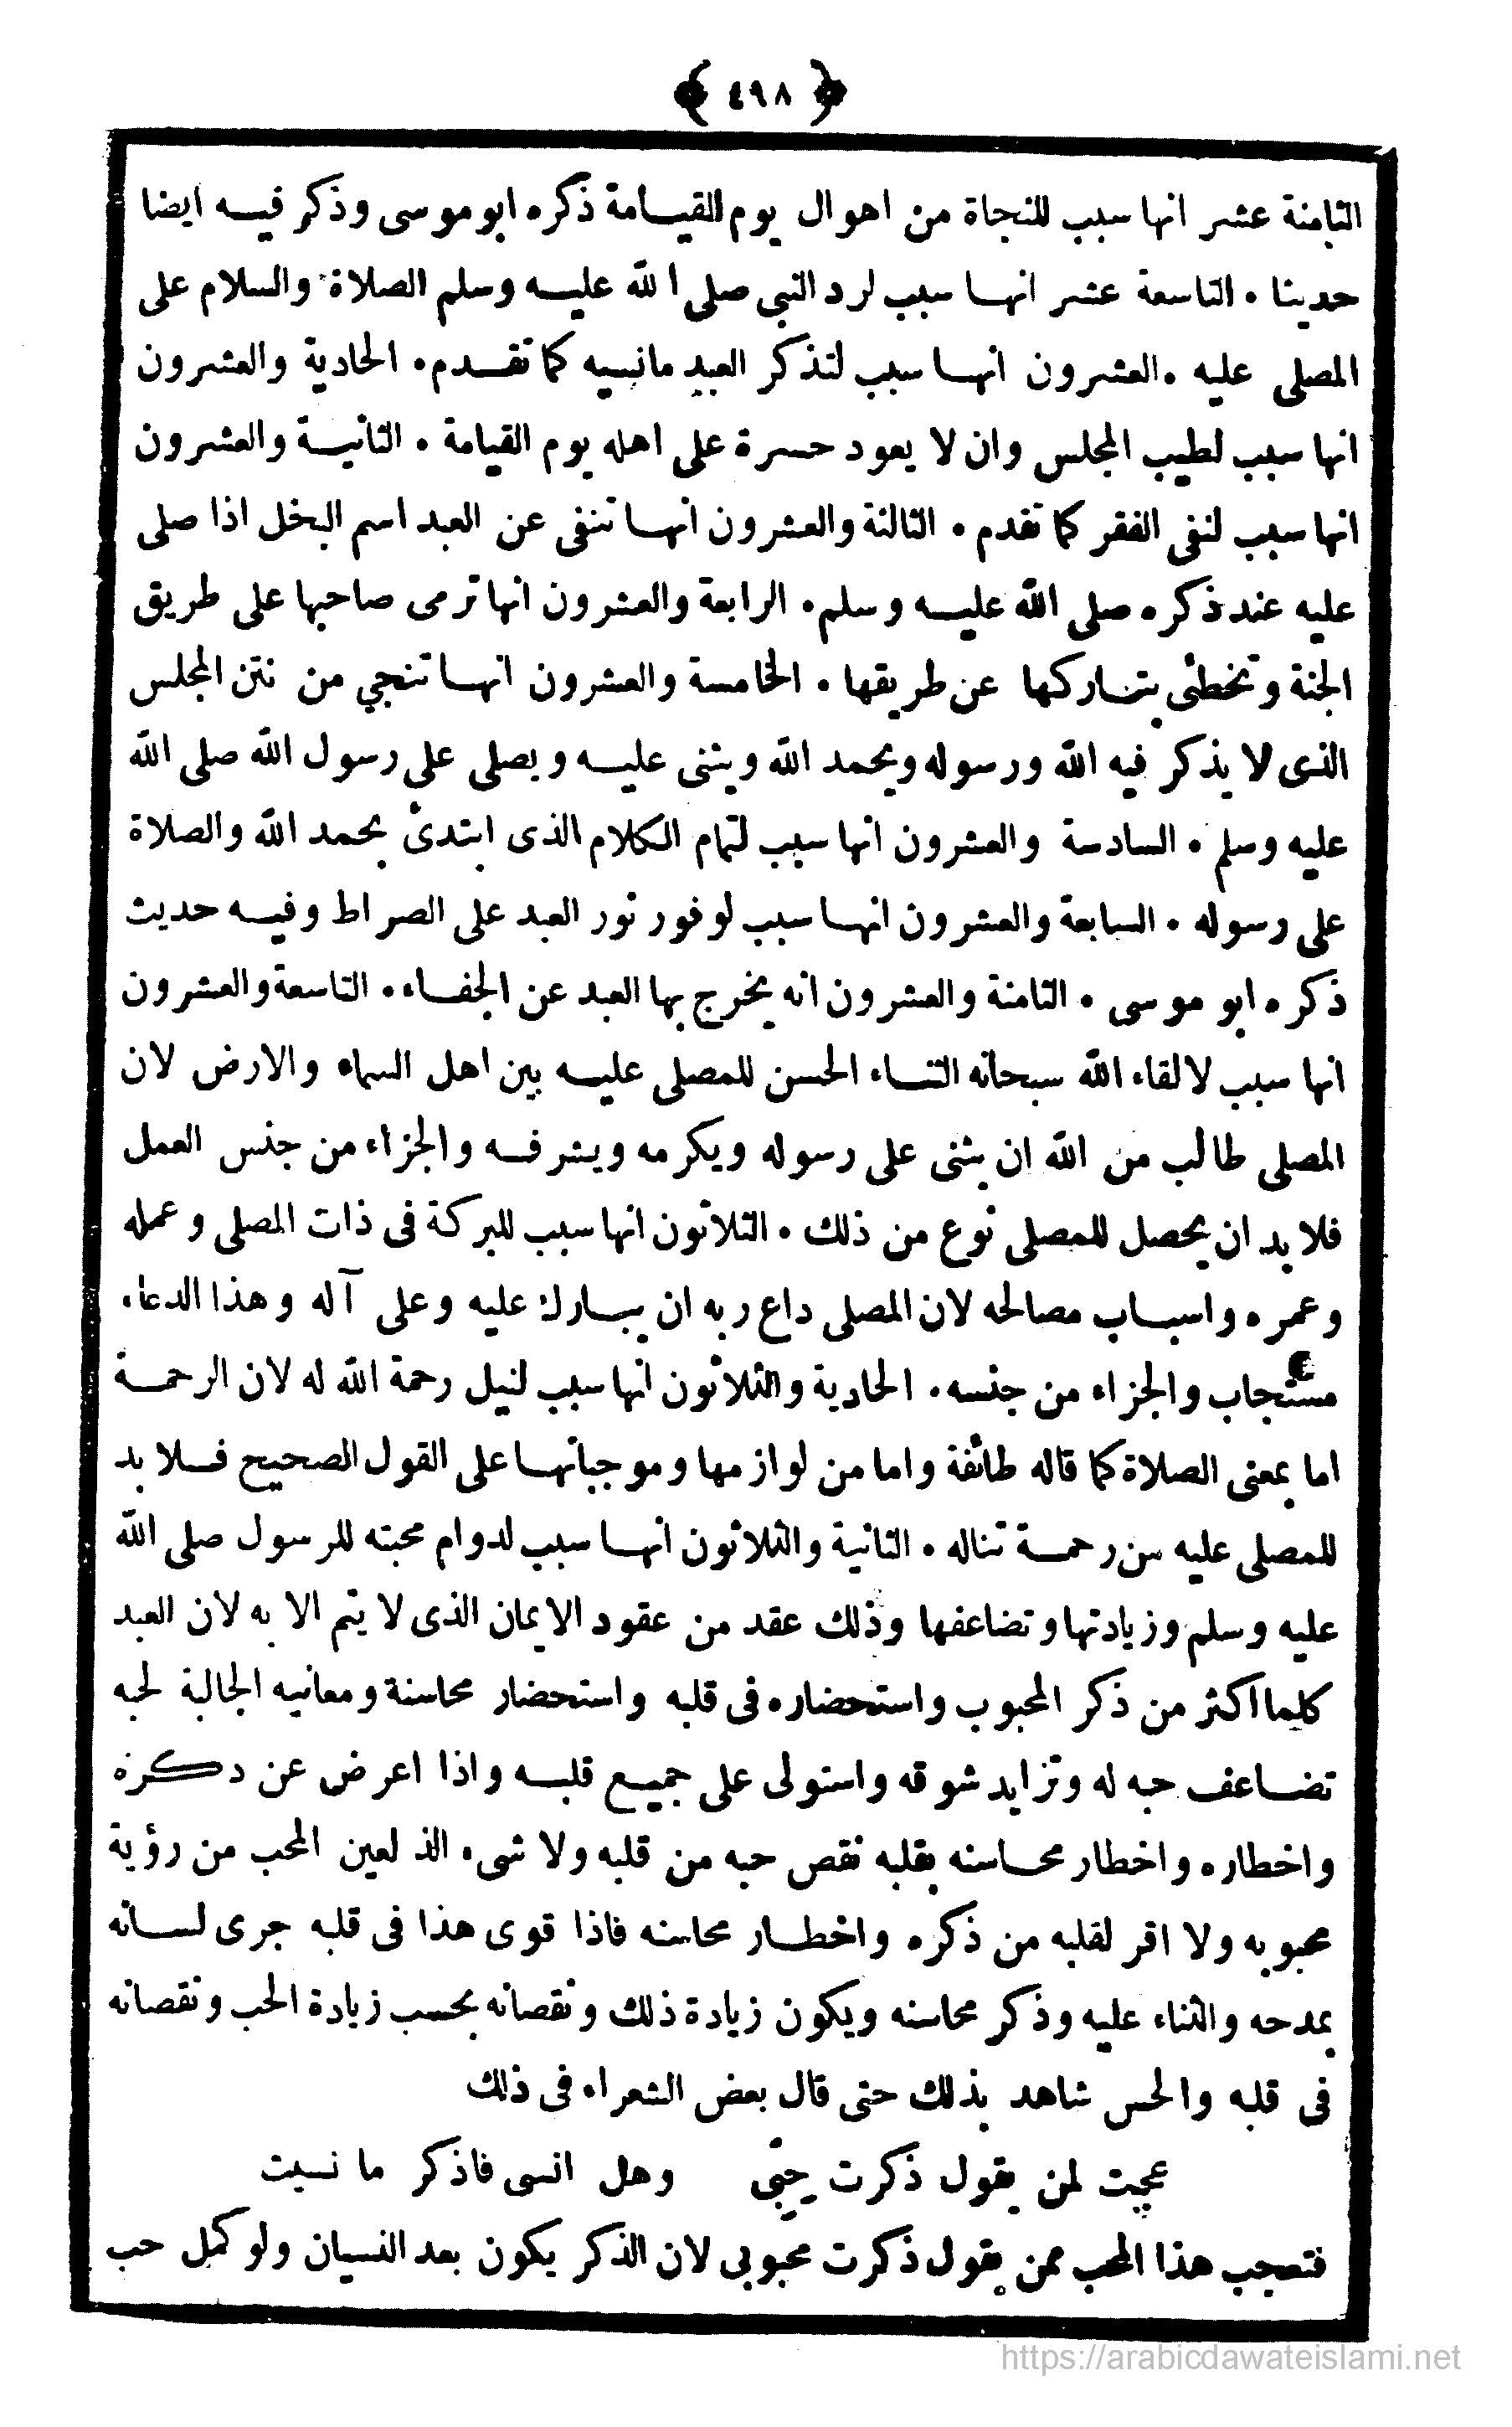 ﴿ ٤٩٨ ﴾
الثامنة عشر انها سبب للنجاة من اهوال يوم القيامة ذكره ابو موسى وذكر فيه ايضا
حديثا • التاسعة عشر انها سبب لرد النبي صلى الله عليه وسلم الصلاة والسلام على
المصلى عليه • العشرون انها سبب لتذكر العبد مانسيه كما تقدم • الحادية والعشرون
انها سبب لطيب المجلس وان لا يعود حسرة على اهله يوم القيامة • الثانية والعشرون
انها سبب لنفى الفقر كما تقدم • الثالثة والعشرون انها تنفى عن العبد اسم البخل اذا صلى
عليه عند ذكره صلى الله عليه وسلم • الرابعة والعشرون انها ترمى صاحبها على طريق
الجنة وتخطئ بتاركها عن طريقها • الخامسة والعشرون انها تنجي من نتن المجلس
الذى لا يذكر فيه الله ورسوله ويحمد الله ويثنى عليه ويصلى على رسول الله صلى الله
عليه وسلم • السادسة والعشرون انها سبب لتمام الكلام الذى ابتدئ بحمد الله والصلاة
على رسوله • السابعة والعشرون انها سبب لوفور نور العبد على الصراط وفيه حديث
ذكره ابو موسى • الثامنة والعشرون انه يخرج بها العبد عن الجفاء • التاسعة والعشرون
انها سبب لالقاء الله سبحانه الثناء الحسن للمصلى عليه بين اهل السماء والارض لان
المصلى طالب من الله ان يثنى على رسوله ويكرمه ويشرفه والجزاء من جنس العمل
فلا بد ان يحصل للمصلى نوع من ذلك • الثلاثون انها سبب للبركة فى ذات المصلى وعمله
وعمره واسباب مصالحه لان المصلى داع ربه ان يبارك عليه وعلى آله وهذا الدعاء
مستجاب والجزاء من جنسه • الحادية والثلاثون انها سبب لنيل رحمة الله له لان الرحمة
اما بمعنى الصلاة كما قاله طائفة واما من لوازمها وموجباتها على القول الصحيح فلا بد
للمصلى عليه من رحمة تناله • الثانية والثلاثون انها سبب لدوام محبته للرسول صلى الله
عليه وسلم وزيادتها وتضاعفها وذلك عقد من عقود الايمان الذى لا يتم الا به لان العبد
كلما اكثر من ذكر المحبوب واستحضاره فى قلبه واستحضار محاسنة ومعانيه الجالبة لحبه
تضاعف حبه له وتزايد شوقه واستولى على جميع قلبه واذا اعرض عن ذكره
واخطاره واخطار محاسنه بقلبه نقص حبه من قلبه ولا شىء الذ لعين المحب من رؤية
محبوبه ولا اقر لقلبه من ذكره واخطار محاسنه فاذا قوى هذا فى قلبه جرى لسانه
بمدحه والثناء عليه وذكر محاسنه ويكون زيادة ذلك ونقصانه بحسب زيادة الحب ونقصانه
فى قلبه والحس شاهد بذلك حتى قال بعض الشعراء فى ذلك
عجبت لمن يقول ذكرت حبّى وهل انسى فاذكر ما نسيت
فتعجب هذا المحب ممن يقول ذكرت محبوبى لان الذكر يكون بعد النسيان ولو كمل حب
https://arabicdawateislami.net